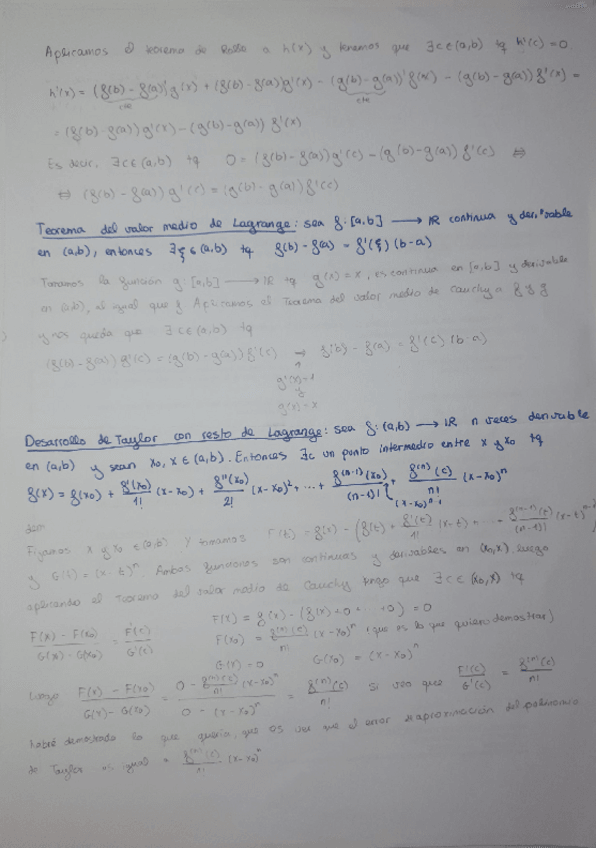 Aplicamos el teorema de Rolle a h(x) y tenemos que ∃c∈(a,b) tq h'(c)=0
h'(x) = (f(b) - f(a))'g(x) + (f(b) - f(a))g'(x) - (g(b) - g(a))'f(x) - (g(b) - g(a)) f'(x) =
cte cte
= (f(b) - f(a)) g'(x) - (g(b) - g(a)) f'(x)
Es decir, ∃c∈(a,b) tq 0 = (f(b) - f(a)) g'(c) - (g(b) - g(a)) f'(c) ⇔
⇔ (f(b) - f(a)) g'(c) = (g(b) - g(a)) f'(c)
Teorema del valor medio de Lagrange: sea f: [a,b] → IR continua y derivable
en (a,b), entonces ∃ξ∈(a,b) tq f(b) - f(a) = f'(ξ)(b-a)
Tomamos la función g: [a,b] → IR tq g(x) = x, es continua en [a,b] y derivable
en (a,b), al igual que f. Aplicamos el Teorema del valor medio de Cauchy a f y g
y nos queda que ∃c∈(a,b) tq
(f(b) - f(a)) g'(c) = (g(b) - g(a)) f'(c) → f(b) - f(a) = f'(c) (b-a)
g'(x)=1
y
g(x)=x
Desarrollo de Taylor con resto de Lagrange: sea f: (a,b) → IR n veces derivable
en (a,b) y sean x0, x ∈ (a,b). Entonces ∃c un punto intermedio entre x y x0 tq
f(x) = f(x0) + f'(x0)/1! (x-x0) + f''(x0)/2! (x-x0)², ... + f^(n-1)(x0)/(n-1)! (x-x0)^n-1 + f^(n)(c)/n! (x-x0)^n
dem
Fijamos x y x0 ∈ (a,b) y tomamos F(t) = f(x) - (f(t) + f'(t)/1! (x-t) + ... + f^(n-1)(t)/(n-1)! (x-t)^n-1)
y G(t) = (x-t)^n. Ambas funciones son continuas y derivables en (x0,x), luego
aplicando el Teorema del valor medio de Cauchy tengo que ∃c∈(x0,x) tq
F(x) = f(x) - (f(x)+0+...+0) = 0
(F(x) - F(x0))/(G(x) - G(x0)) = F'(c)/G'(c) F(x0) = f^(n)(c)/n! (x-x0)^n (que es lo que quiero demostrar)
G(x) = 0 G(x0) = (x-x0)^n
Luego (F(x) - F(x0))/(G(x) - G(x0)) = (0 - f^(n)(c)/n! (x-x0)^n)/(0 - (x-x0)^n) = f^(n)(c)/n! si veo que F'(c)/G'(c) = f^(n)(c)/n!
habré demostrado lo que quería, que es ver que el error aproximación del polinomio
de Taylor es igual a f^(n)(c)/n! (x-x0)^n